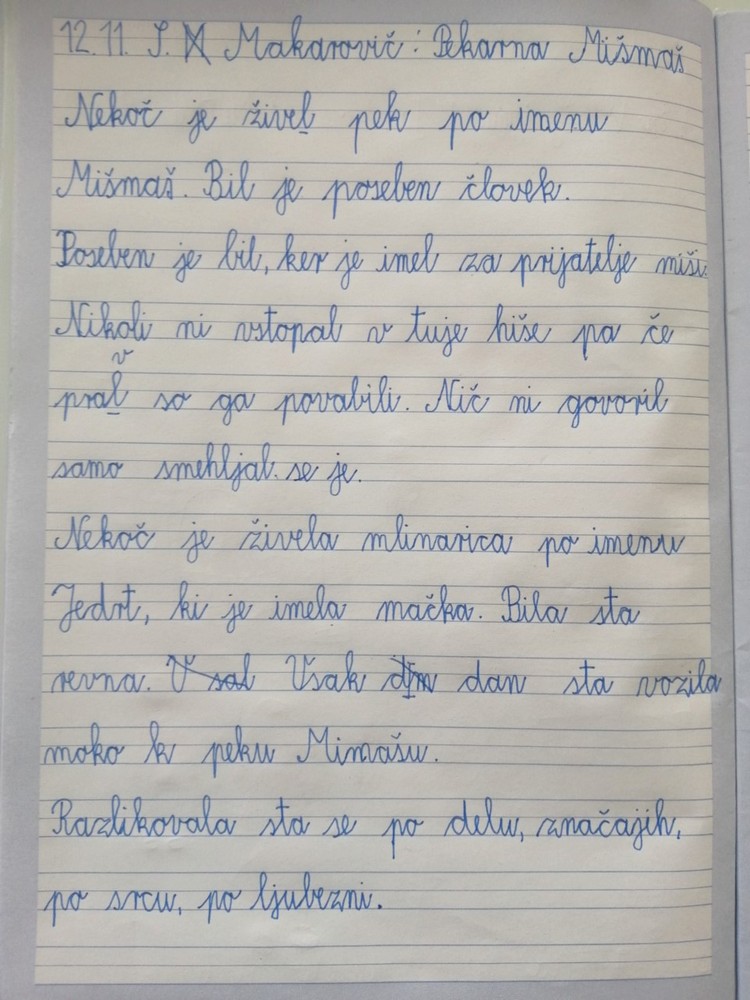 12. 11. S. M Makarovič: Pekarna Mišmaš
Nekoč je živel pek po imenu
Mišmaš. Bil je poseben človek.
Poseben je bil, ker je imel za prijatelje miši.
Nikoli ni vstopal v tuje hiše pa če
v
pral so ga povabili. Nič ni govoril
samo smehljal se je.
Nekoč je živela mlinarica po imenu
Jedrt, ki je imela mačka. Bila sta
revna. V sal Vsak dan sta vozila
moko k peku Mimašu.
Razlikovala sta se po delu, značajih,
po srcu, po ljubezni.